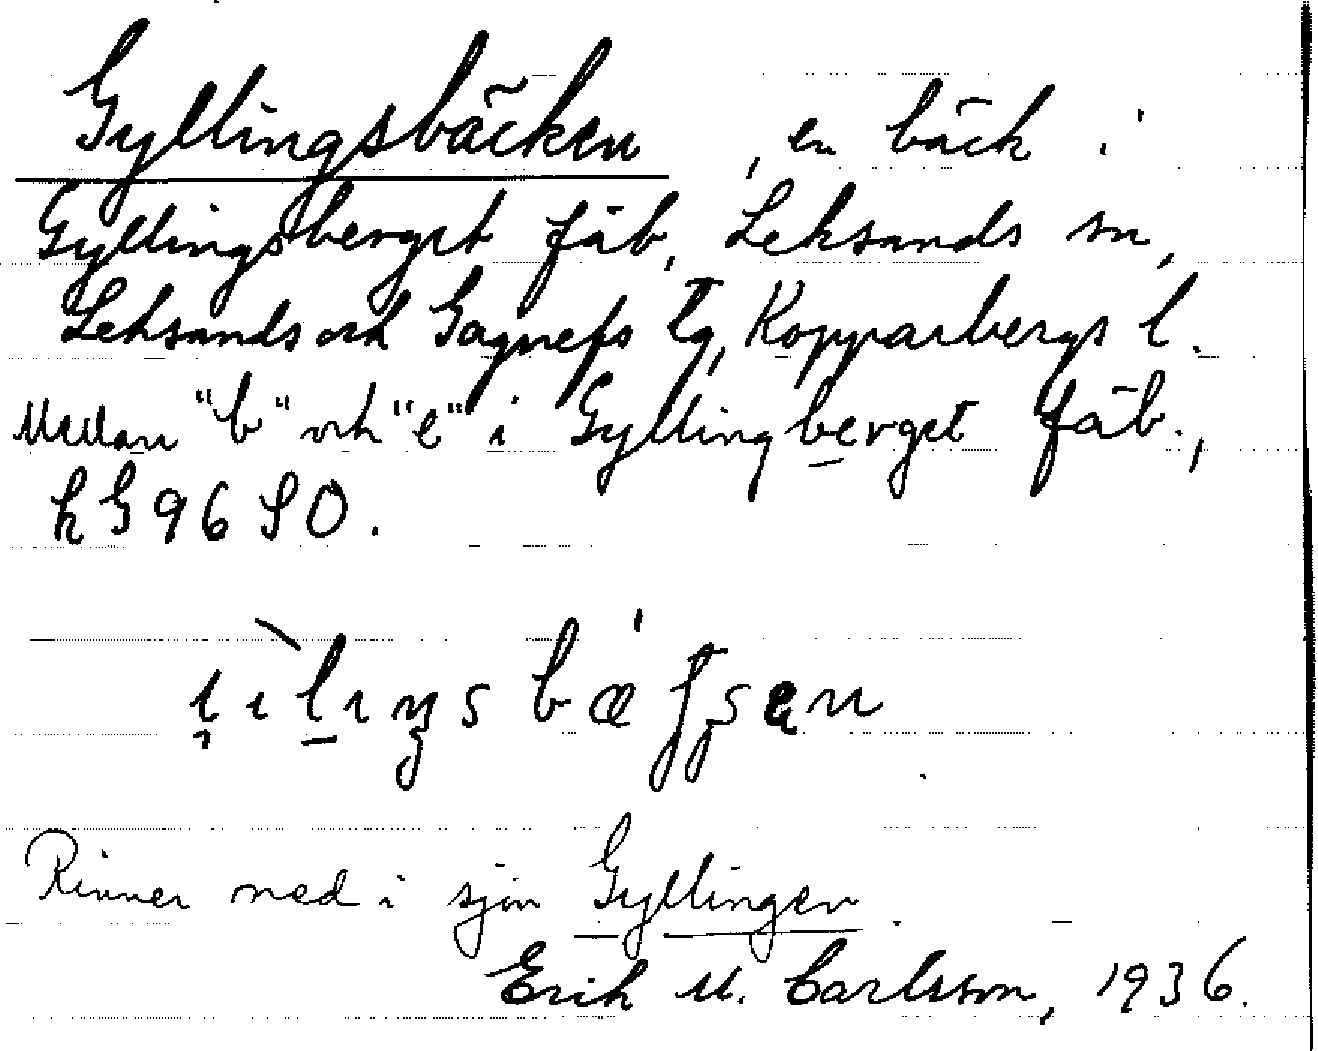 Gyllingsbäcken, en bäck i
Gyllingsberget fäb, Leksands sn,
Leksands och Gagnefs tg, Kopparbergs l.
Mellan "b" och "e" i Gyllingberget fäb.,
kG 96 SO.
Rinner ned i sjön Gyllingen.
Erik M. Carlsson, 1936.